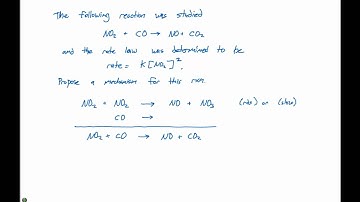 The following reaction was studied
NO₂ + CO → NO + CO₂
and the rate law was determined to be
rate = K[NO₂]².
Propose a mechanism for this rxn.
NO₂ + NO₂ → NO + NO₃ (rds) or (slow)
CO →
NO₂ + CO → NO + CO₂